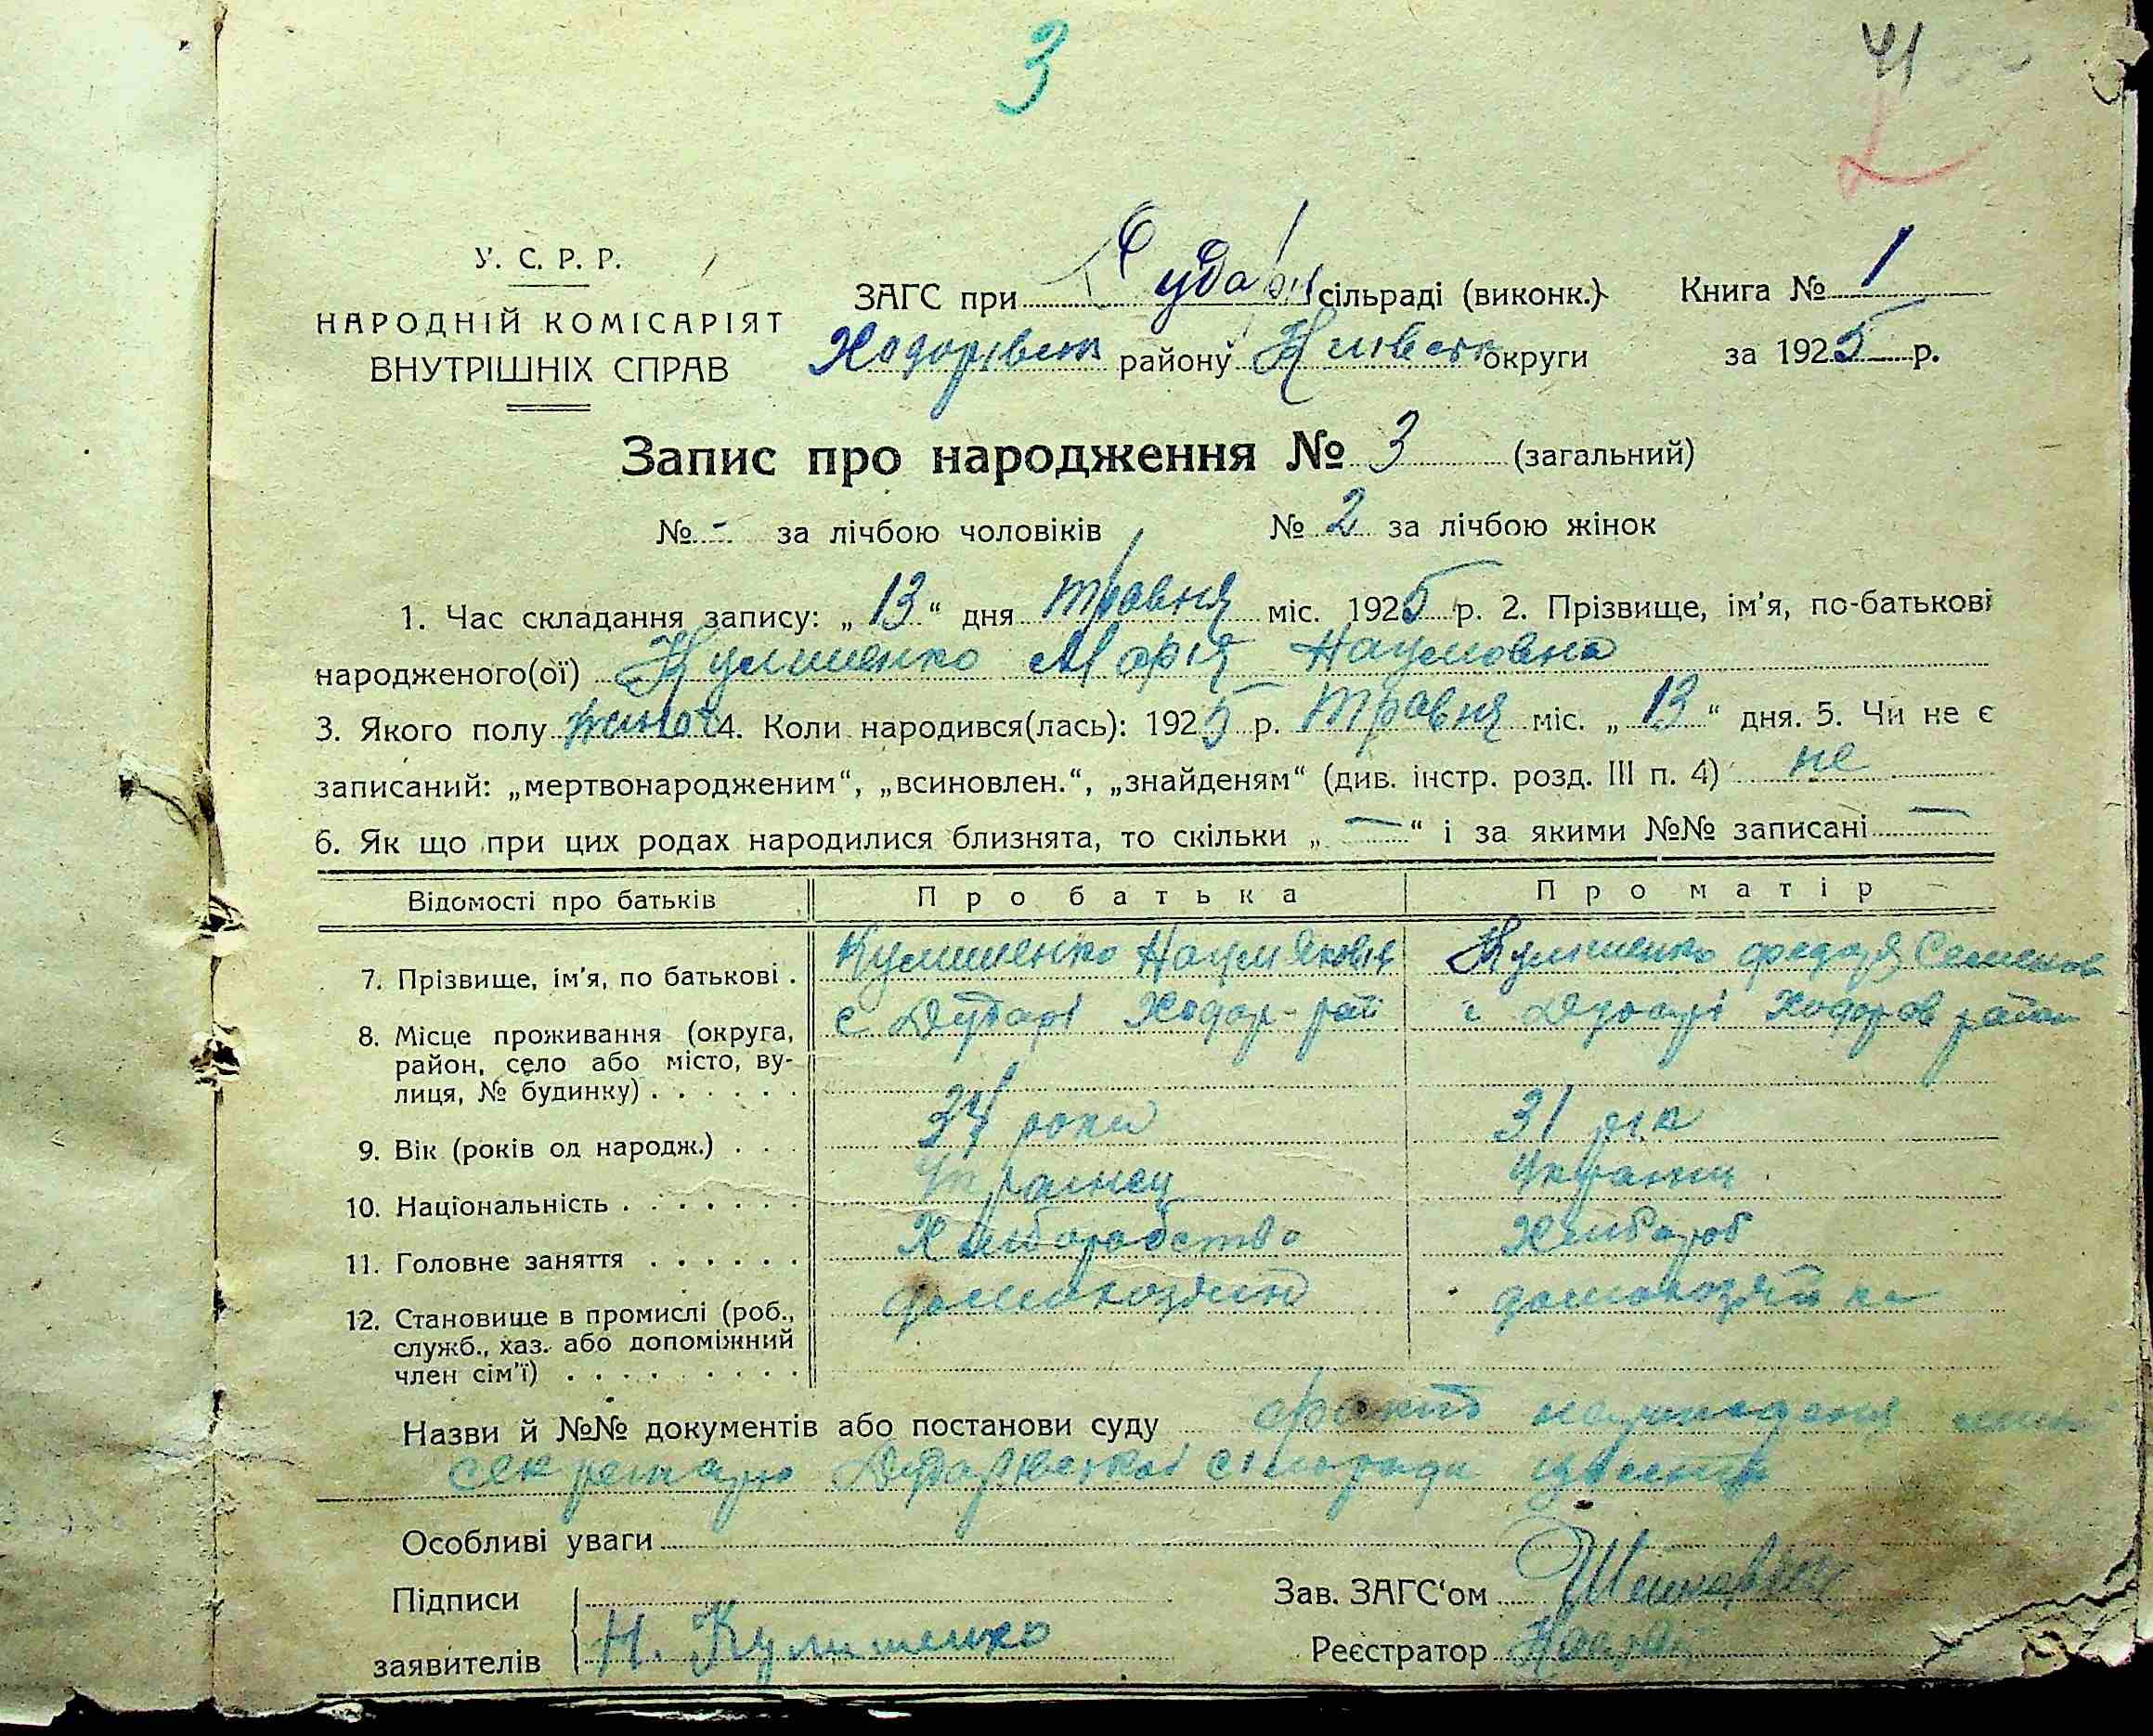 3
41
У. С. Р. Р.
НАРОДНІЙ КОМІСАРІЯТ
ВНУТРІШНІХ СПРАВ
ЗАГС при Дударі сільраді (виконк.)
Ходорівськ району Київськ округи
Книга № 1
за 1925 р.
Запис про народження № 3 (загальний)
№ - за лічбою чоловіків № 2 за лічбою жінок
1. Час складання запису: „ 13 “ дня травня міс. 1925 р. 2. Прізвище, ім'я, по-батькові
народженого(ої) Кулишенко Марія Наумовна
3. Якого полу жіноч 4. Коли народився(лась): 1925 р. травня міс. „ 13 “ дня. 5. Чи не є
записаний: „мертвонародженим“, „всиновлен.“, „знайденям“ (див. інстр. розд. III п. 4) не
6. Як що при цих родах народилися близнята, то скільки „ — “ і за якими №№ записані —
Відомості про батьків Про батька Про матір
7. Прізвище, ім'я, по батькові . Кулишенко Наум Якович Кулішенко Федора Семенов
8. Місце проживання (округа, с Дударі Ходор-рай с Дударі Ходоров район
район, село або місто, ву-
лиця, № будинку) . . . . . .
9. Вік (років од народж.) . . . 34 роки 31 рік
10. Національність . . . . . . . Українец Україн
11. Головне заняття . . . . . . Хліборобство Хлібороб
12. Становище в промислі (роб., домохозяїн домохозяйка
служб., хаз. або допоміжний
член сім'ї) . . . . . . . . .
Назви й №№ документів або постанови суду факт народженя
секретарю Дударівської сільради
Особливі уваги
Підписи
заявителів Н. Кулишенко
Зав. ЗАГС'ом
Реєстратор